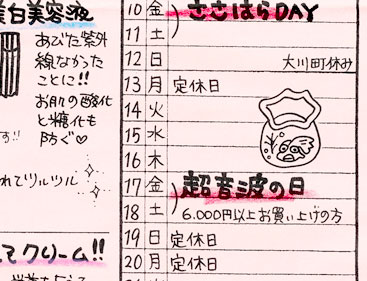 美白美容液
あびた紫外
線なかった
ことに!!
お肌の酸化
と糖化も
防ぐ♡
す!!
れてツルツル
てクリーム!!
10 金 ささはらDAY
11 土
12 日 大川町休み
13 月 定休日
14 火
15 水
16 木
17 金 超音波の日
18 土 6.000円以上お買い上げの方
19 日 定休日
20 月 定休日